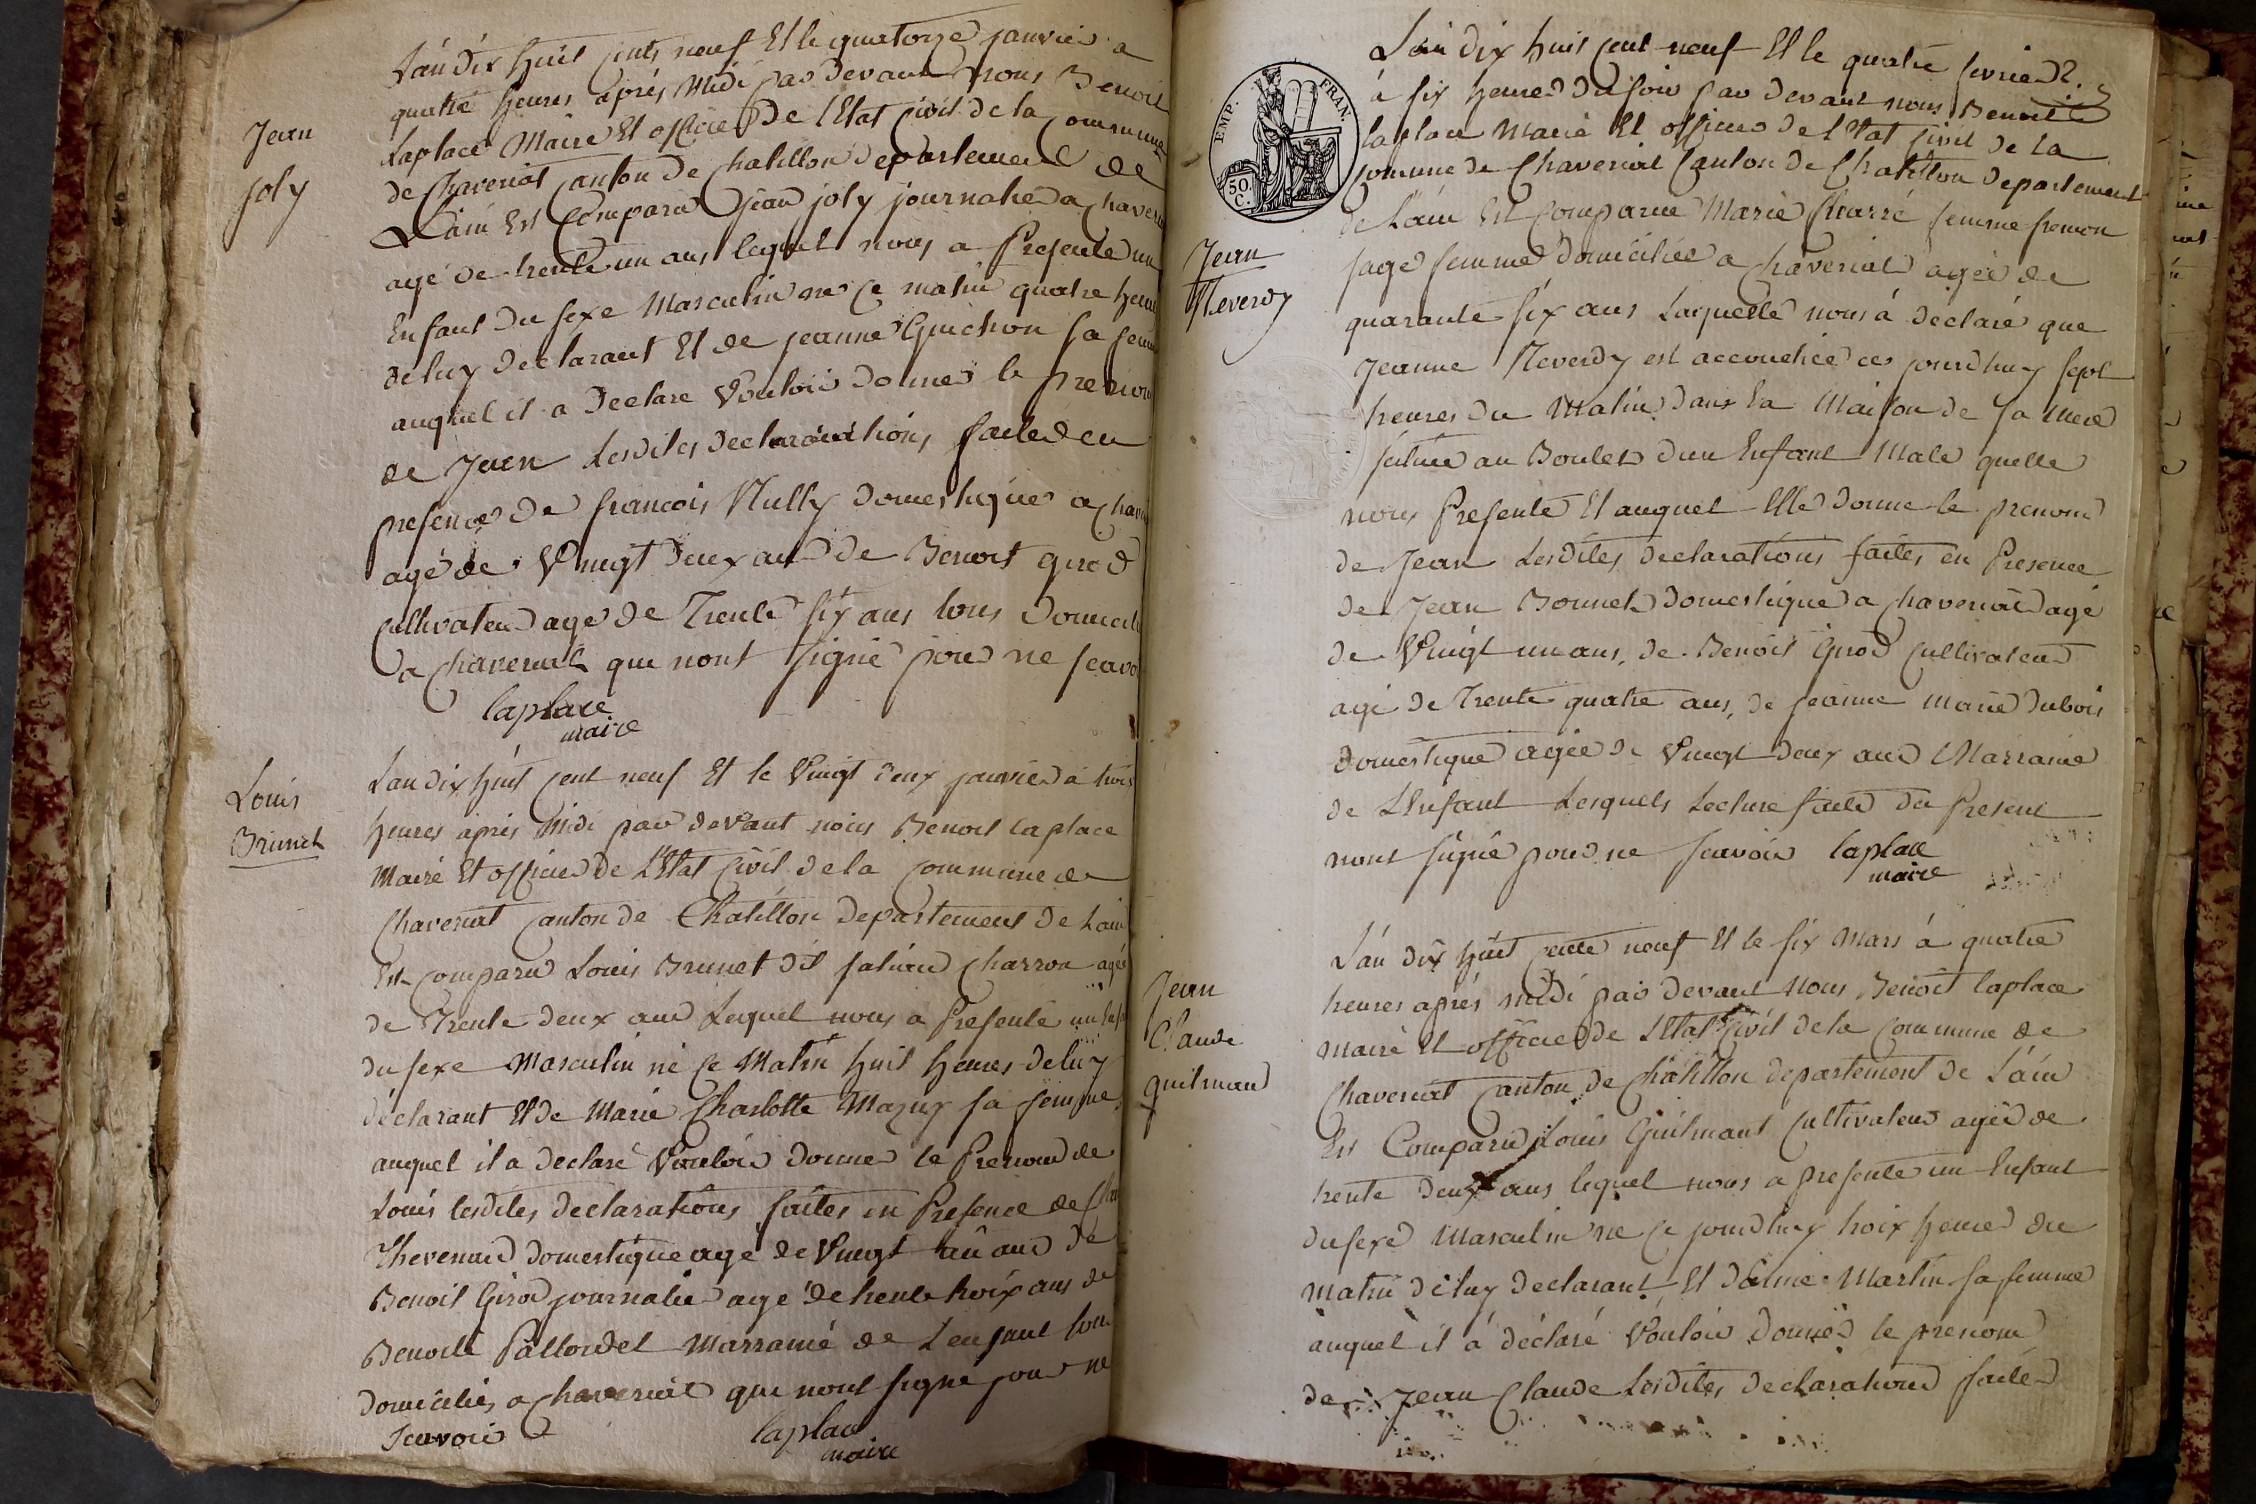 Jean
joly
L'an Dix huit cents neuf Et le quatorze janvier a
quatre heures après Midi par devant nous Benoit
Laplace Maire Et officier De l'Etat Civil de la Commune
de Chaveriat Canton De Chatillon département de
L'ain Est Comparu Jean joly journalier a Chaveri
agé de trente un ans lequel nous a Presenté un
Enfant Du sexe Masculin né Ce matin quatre heu
de luy Declarant Et de jeanne Guichon sa fem
auquel il a Declaré Vouloir donner le prenom
de Jean Lesdites declarations faites en
presence De francois Nully Domestique a Chav
agé de Vingt Deux ans De Benoit girod
Cultivateur agé De Trente six ans tous Domicili
a Chaveriat qui n'ont signé pour ne scavo
laplace
maire
Louis
Brunet
L'an dix huit cent neuf Et le Vingt deux janvier a trois
heures après Midi par devant nous Benoit laplace
Maire Et officier De L'Etat Civil de la Commune de
Chaveriat Canton de Chatillon département De L'ain
Est Comparu Louis Brunet dit Charron agé
de Trente deux ans Lequel nous a Presenté un
du sexe Masculin né Ce Matin huit heures de luy
déclarant Et de Marie Charlotte Mazuy sa femme
auquel il a Declaré Vouloir Donner le Prenom de
Louis lesdites declarations faites en Presence de
Thevenard Domestique agé de Vingt ans De
Benoit Girod journalier agé de trente troix ans de
Benoite Pallordet Marraine de L'enfant tous
domiciliés a Chaveriat qui n'ont signé pour ne
scavoir
laplace
maire
EMP. FRAN.
50.
C.
Jean
Neverdy
L'an Dix huit cent neuf Et le quatre fevrier
à six heures Du soir par devant nous Benoit
laplace Maire Et officier De l'Etat Civil de la
Commune de Chaveriat Canton de Chatillon Département
de L'ain Est Comparue Marie femme fremon
sage femme Domiciliée a Chaveriat agée de
quarante six ans Laquelle nous á declaré que
Jeanne Neverdy est accouchée ce jourdhuy sept
heures Du Matin Dans la Maison de sa Mere
située au Boulet d'un Enfant Male quelle
nous Presente Et auquel Elle donne le prenom
de Jean Lesdites declarations faites en Presence
de Jean Bonnet Domestique a Chaveriat agé
de Vingt un ans, De Benoit Girod Cultivateur
agé De Trente quatre ans, de jeanne marie dubois
domestique agée de Vingt Deux ans Marraine
de L'Enfant Lesquels Lecture faite Du Present
n'ont signé pour ne scavoir laplace
maire
Jean
Claude
guilmand
L'an dix huit cent neuf Et le six Mars à quatre
heures aprés midi par devant Nous Benoit laplace
maire Et officier De L'Etat Civil de la Commune de
Chaveriat Canton de Chatillon département De L'ain
Est Comparu Louis Guilmant Cultivateur agé de
trente Deux ans lequel nous a presenté un Enfant
du sexe Masculin né Ce jourdhuy troix heures du
matin de luy Declarant Et Martin sa femme
auquel il á déclaré Vouloir Donner le prenom
de Jean Claude Lesdites declarations faites